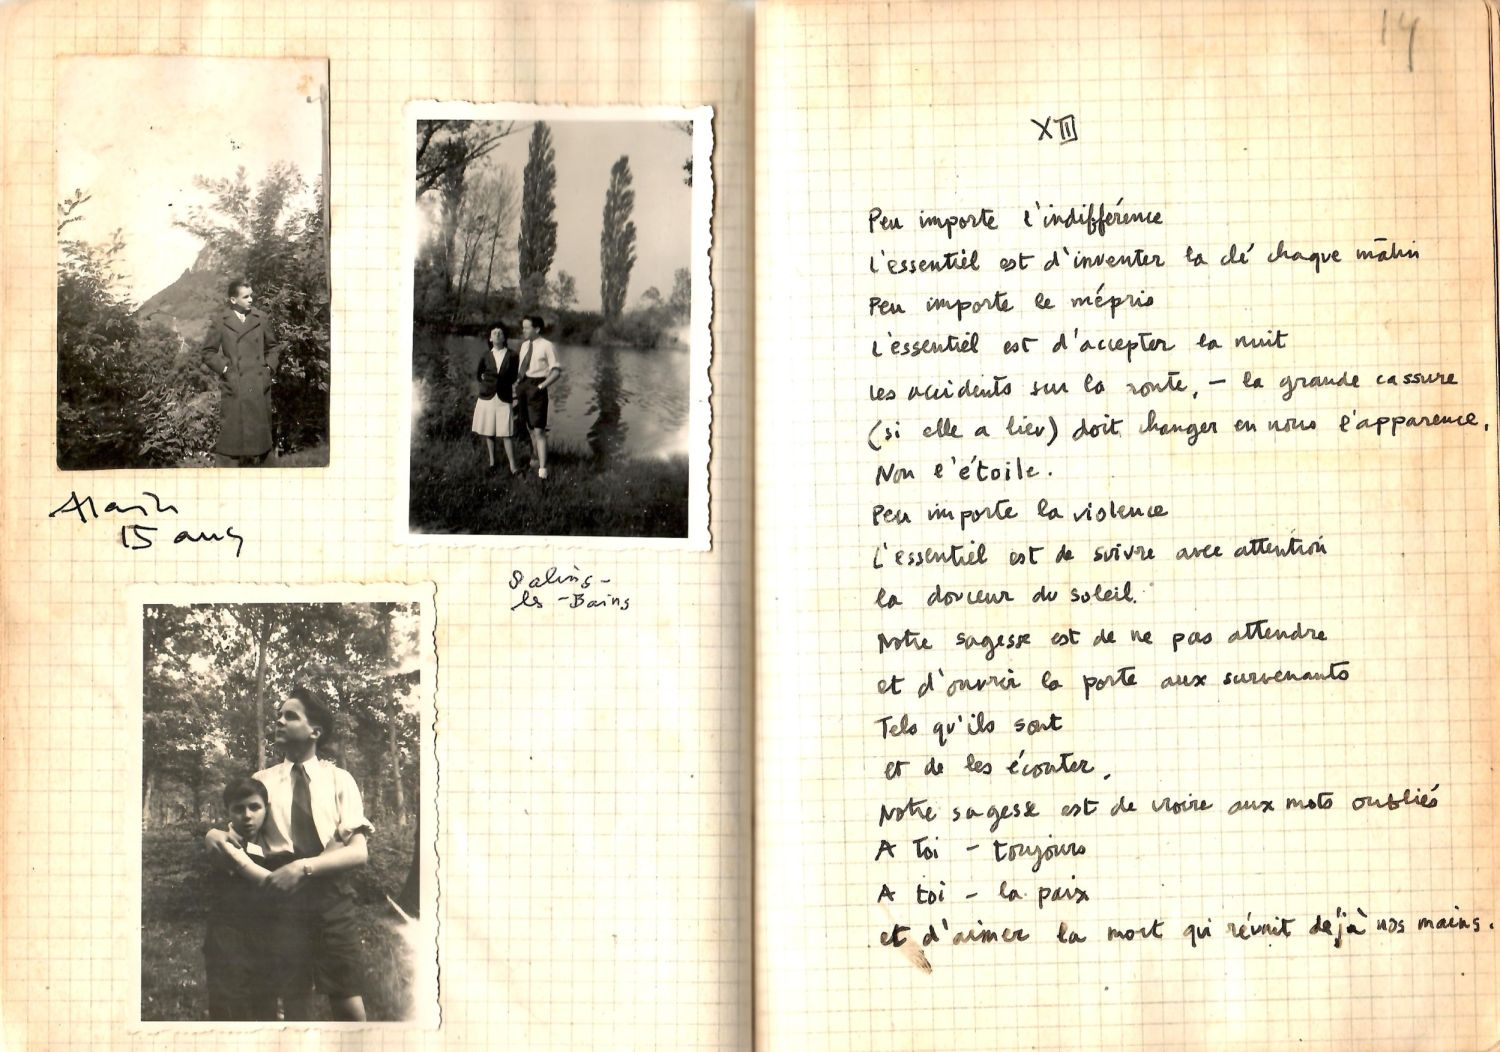 Alain
15 ans
Salins-
les-Bains
14
XII
Peu importe l'indifférence
L'essentiel est d'inventer la clé chaque matin
Peu importe le mépris
L'essentiel est d'accepter la nuit
Les accidents sur la route, – la grande cassure
(si elle a lieu) doit changer en nous l'apparence,
Non l'étoile.
Peu importe la violence
L'essentiel est de suivre avec attention
la douceur du soleil.
Notre sagesse est de ne pas attendre
et d'ouvrir la porte aux survenants
Tels qu'ils sont
et de les écouter,
Notre sagesse est de croire aux mots oubliés
A toi – toujours
A toi – la paix
et d'aimer la mort qui réunit déjà nos mains.